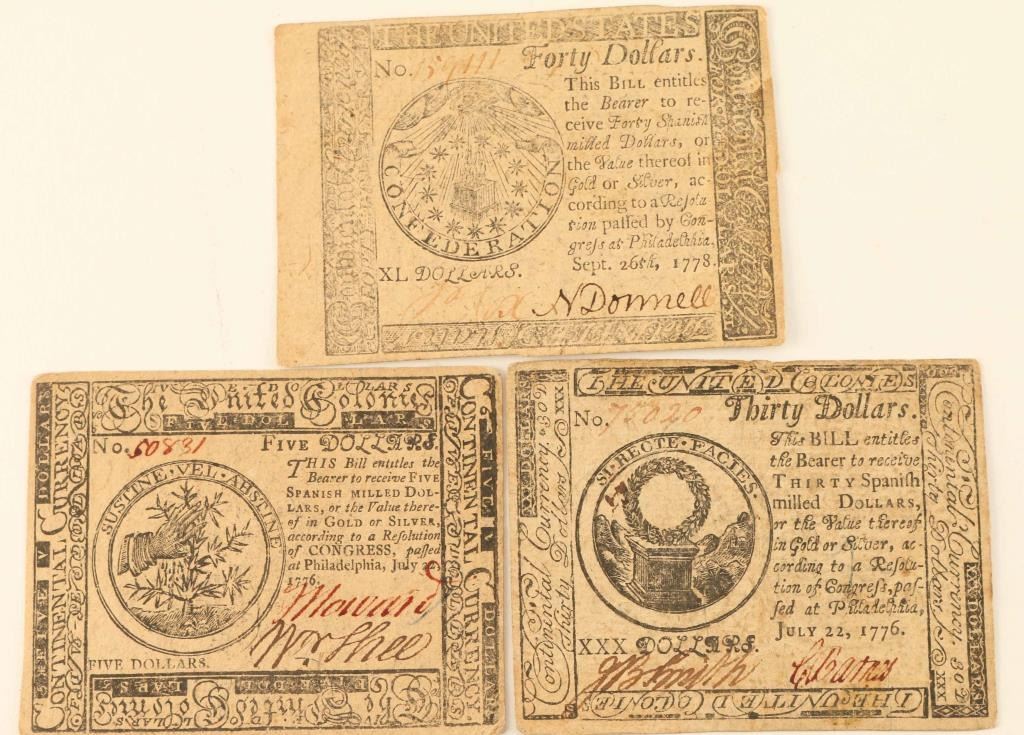 THE UNITED STATES
No.
Forty Dollars.
This BILL entitles
the Bearer to re-
ceive Forty Spanish
milled Dollars, or
the Value thereof in
Gold or Silver, ac-
cording to a Resolu-
tion passed by Con-
gress at Philadelphia,
Sept. 26th, 1778.
CONFEDERATION
XL DOLLARS.
N Donnell
The United Colonies
CONTINENTAL CURRENCY
CONTINENTAL CURRENCY
No. 50831
FIVE DOLLARS.
THIS Bill entitles the
Bearer to receive FIVE
SPANISH MILLED DOL-
LARS, or the Value there-
of in GOLD or SILVER,
according to a Resolution
of CONGRESS, passed
at Philadelphia, July 22,
1776.
SUSTINE·VEL·ABSTINE
FIVE DOLLARS.
Wm Shee
The United Colonies
THE UNITED COLONIES
Continental Currency
Thirty Dollars
No. 75020
Thirty Dollars.
This BILL entitles
the Bearer to receive
THIRTY Spanish
milled DOLLARS,
or the Value thereof
in Gold or Silver, ac-
cording to a Resolu-
tion of Congress, pas-
sed at Philadelphia,
JULY 22, 1776.
SI·RECTE·FACIES·
XXX DOLLARS.
THE UNITED COLONIES